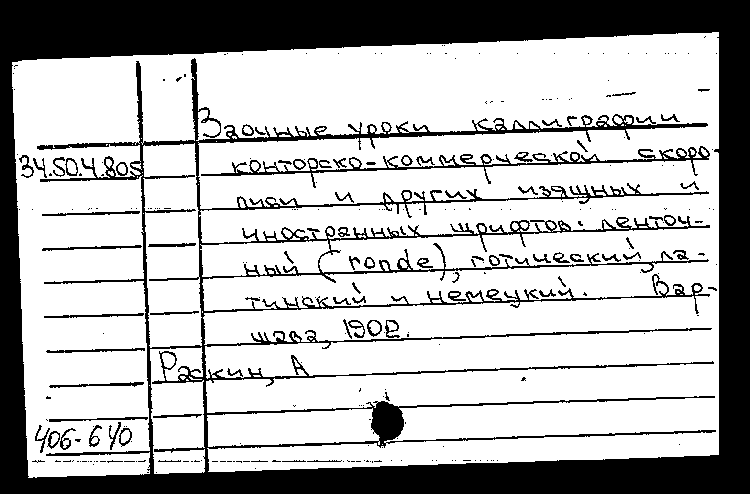 Заочные уроки каллиграфии
34.50.4.805
конторско-коммерческой скоро-
писи и других изящных и
иностранных шрифтов: ленточ-
ный (ronde), готический, ла-
тинский и немецкий. Вар-
шава, 1902.
Раскин, А
406-640